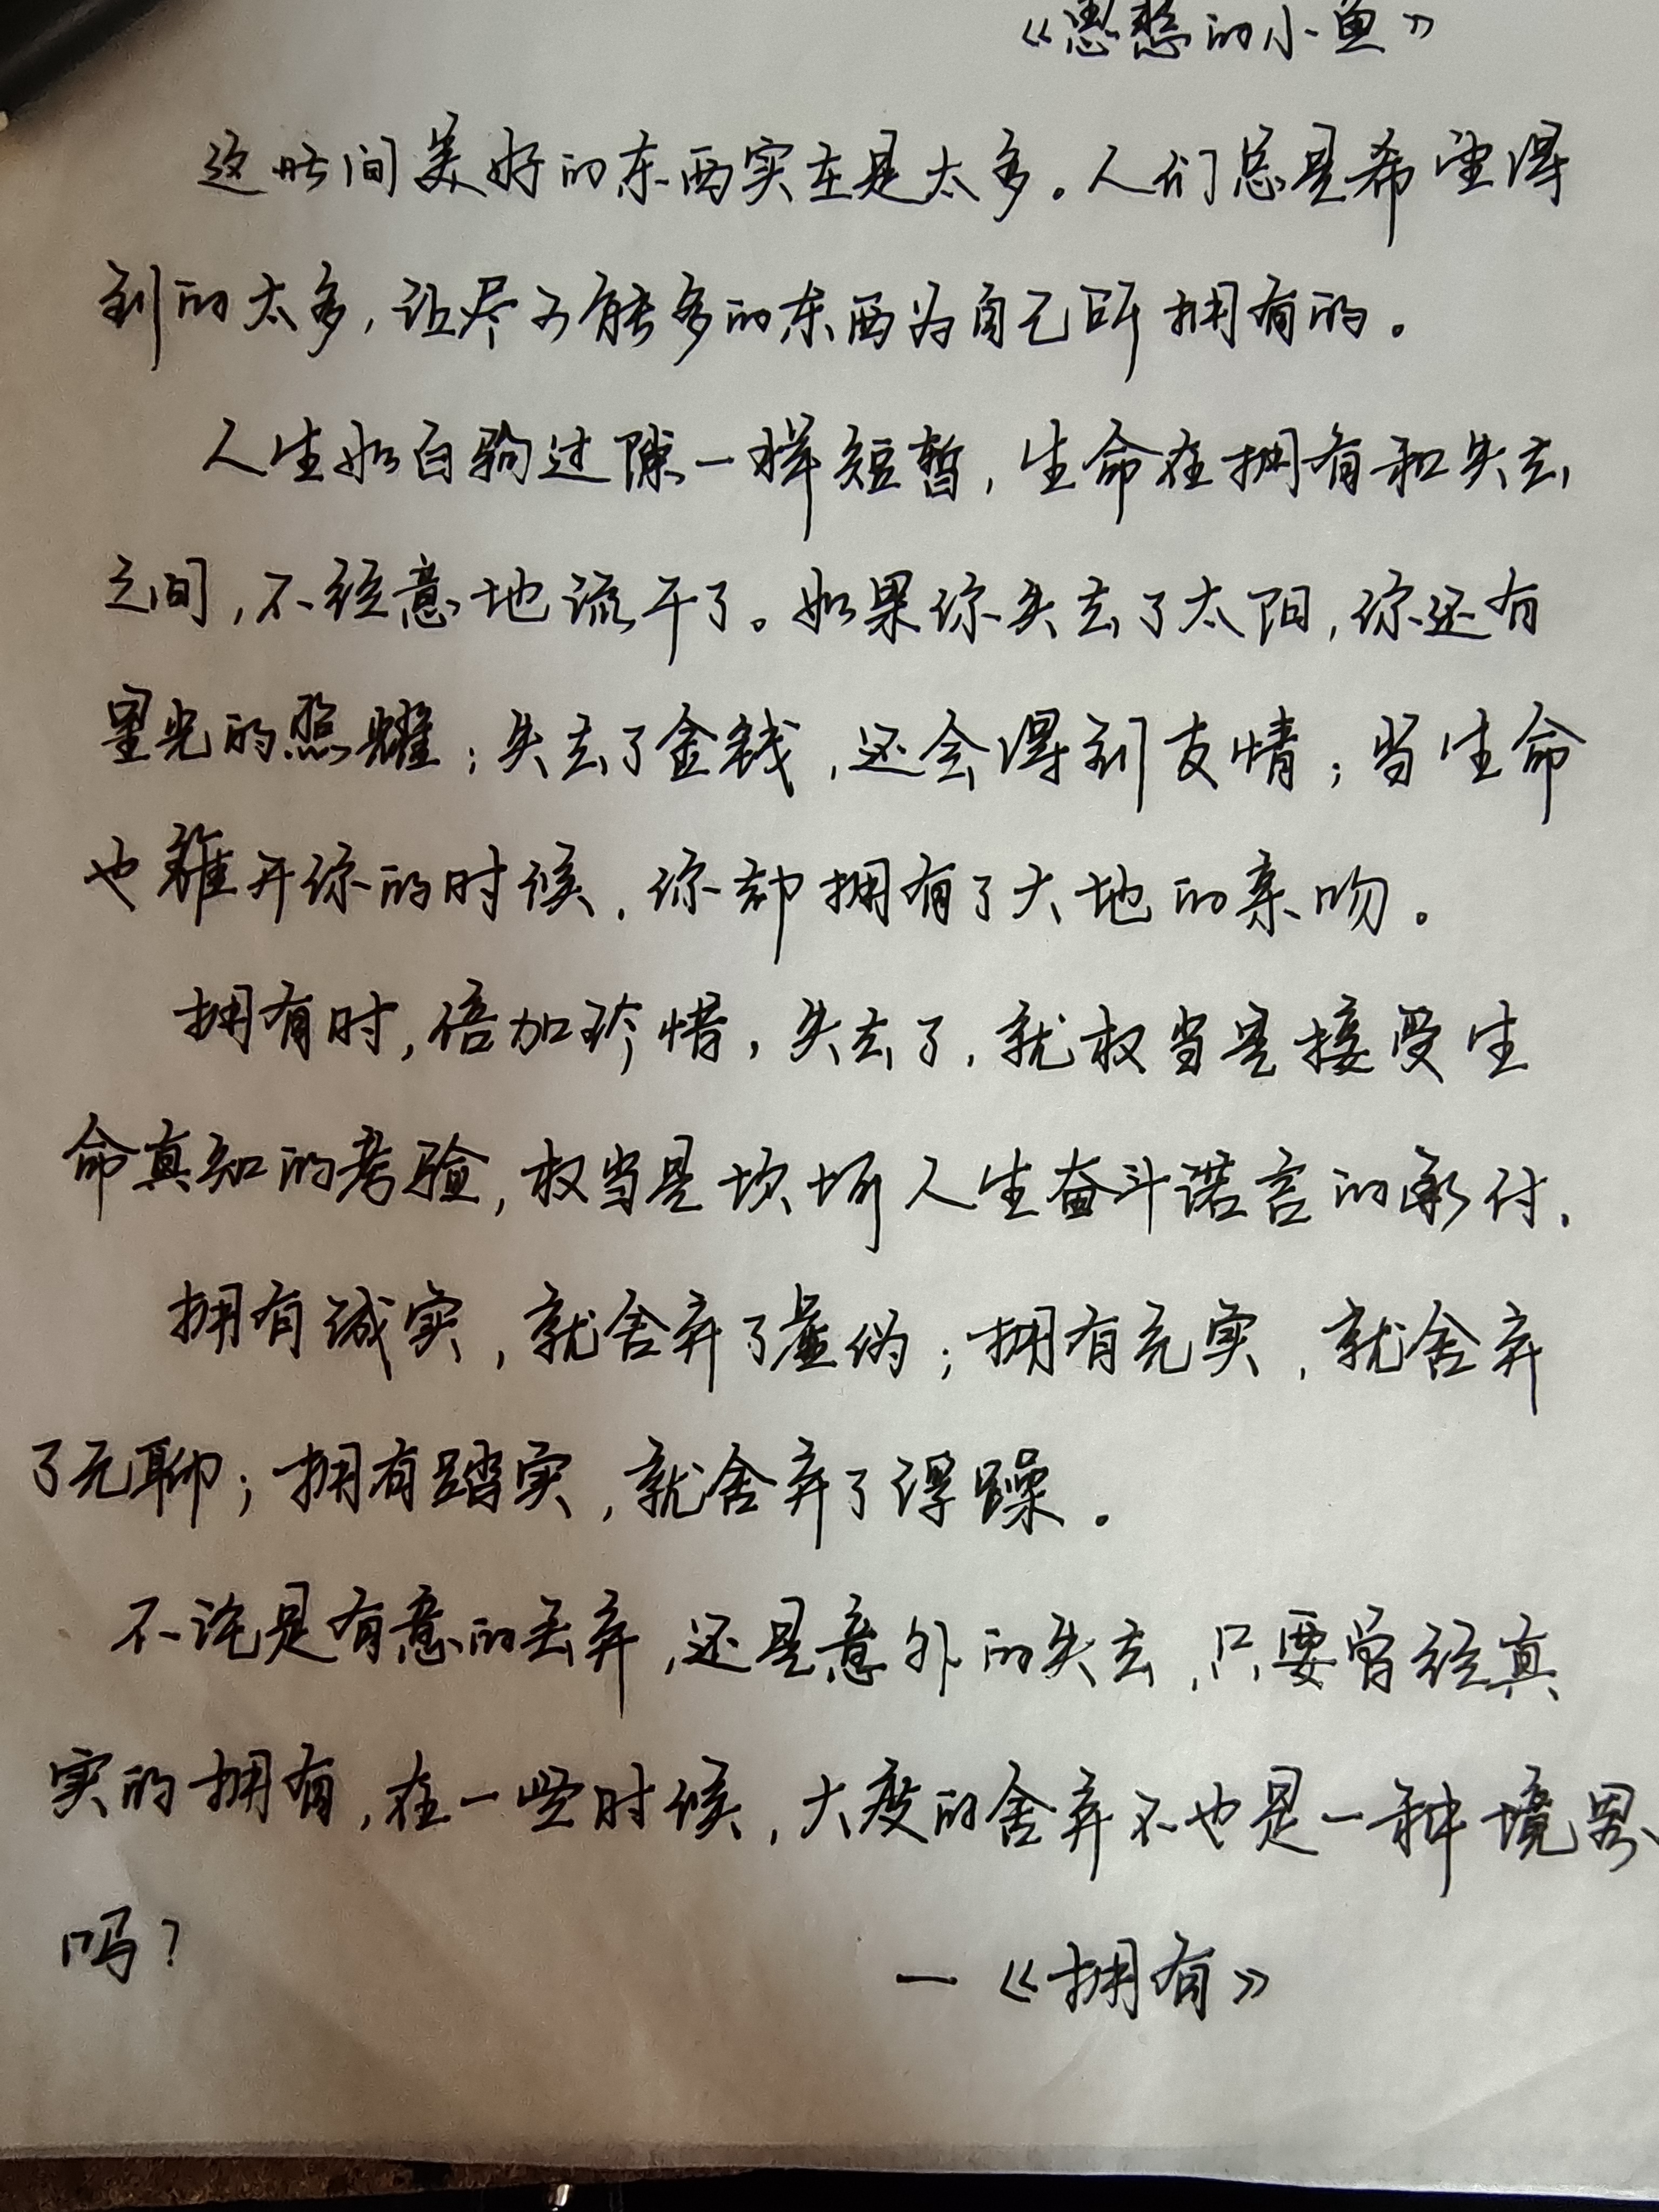 《愚憨的小鱼》
这世间美好的东西实在是太多。人们总是希望得
到的太多，让尽可能多的东西为自己所拥有的。
人生如白驹过隙一样短暂，生命在拥有和失去
之间，不经意地流干了。如果你失去了太阳，你还有
星光的照耀；失去了金钱，还会得到友情；当生命
也离开你的时候，你却拥有了大地的亲吻。
拥有时，倍加珍惜，失去了，就权当是接受生
命真知的考验，权当是坎坷人生奋斗诺言的承付，
拥有诚实，就舍弃了虚伪；拥有充实，就舍弃
了无聊；拥有踏实，就舍弃了浮躁。
不论是有意的丢弃，还是意外的失去，只要曾经真
实的拥有，在一些时候，大度的舍弃不也是一种境界
吗？
—《拥有》